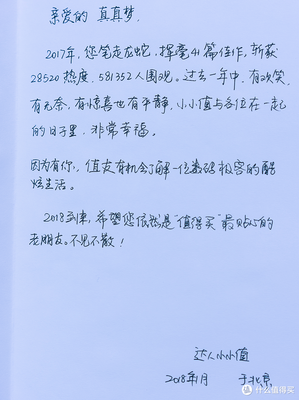 亲爱的 真真梦,
2017年,您笔走龙蛇,挥毫41篇佳作,斩获
28520热度,581352人围观。过去一年中,有欢笑
有无奈,有惊喜也有平静,小小值与各位在一起
的日子里,非常幸福。
因为有你,值友有机会了解一位数码极客的酷
炫生活。
2018到来,希望您依然是“值得买”最贴心的
老朋友。不见不散!
达人小小值
2018年1月 于北京
值 什么值得买